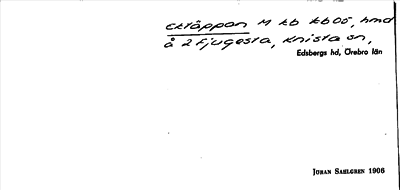 Ektäppan M kb kb05, hmd
å 2 Fjugesta, Knista sn,
Edsbergs hd, Örebro län
JÖRAN SAHLGREN 1906